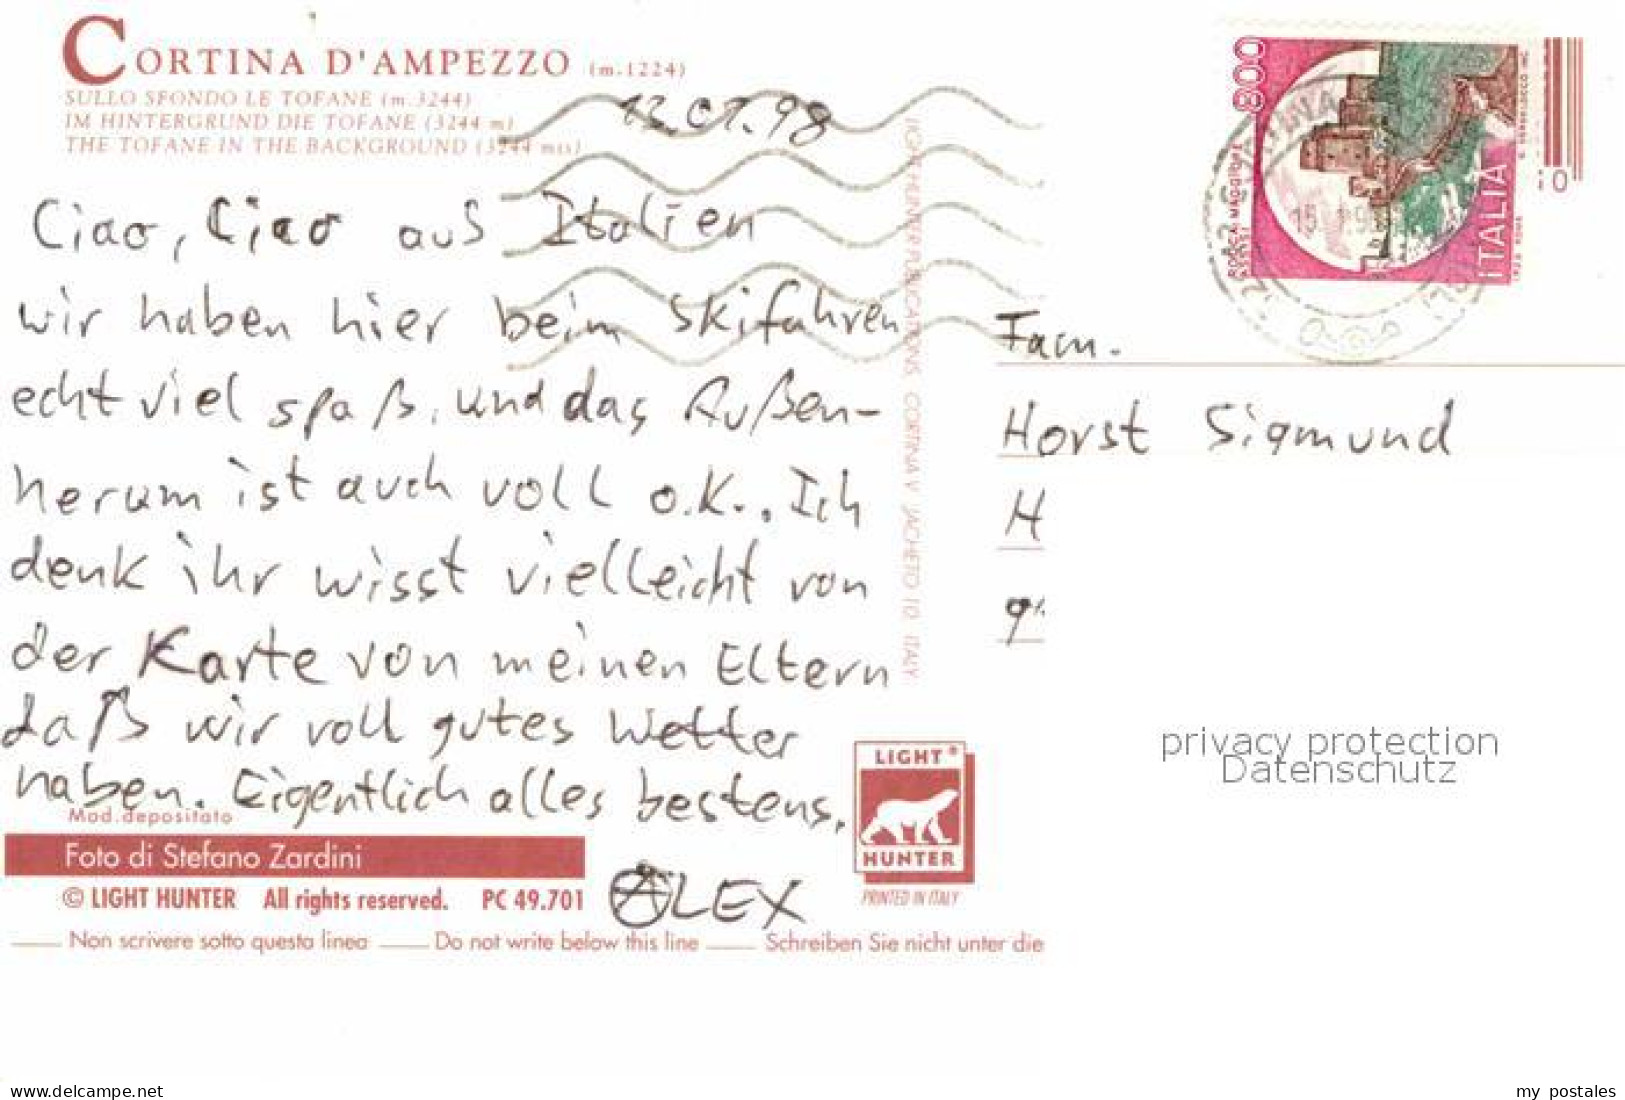 CORTINA D'AMPEZZO (m.1224)
SULLO SFONDO LE TOFANE (m.3244)
IM HINTERGRUND DIE TOFANE (3244 m)
THE TOFANE IN THE BACKGROUND (3244 mts)
13.01.98
Ciao, Ciao aus Italien
wir haben hier beim Skifahren
echt viel spaß, und das Außen-
herum ist auch voll o.K.. Ich
denk ihr wisst vielleicht von
der Karte von meinen Eltern
daß wir voll gutes Wetter
haben. Eigentlich alles bestens.
ALEX
Mod. depositato
Foto di Stefano Zardini
© LIGHT HUNTER All rights reserved. PC 49.701
Non scrivere sotto questa linea Do not write below this line Schreiben Sie nicht unter die
LIGHT HUNTER PUBLICATIONS CORTINA V. JACHETO 10 ITALY
LIGHT ®
HUNTER
PRINTED IN ITALY
800
ROCCA MAGGIORE
ASSISI
ITALIA
Fam.
Horst Sigmund
H
privacy protection
Datenschutz
delcampe.net
my_postales